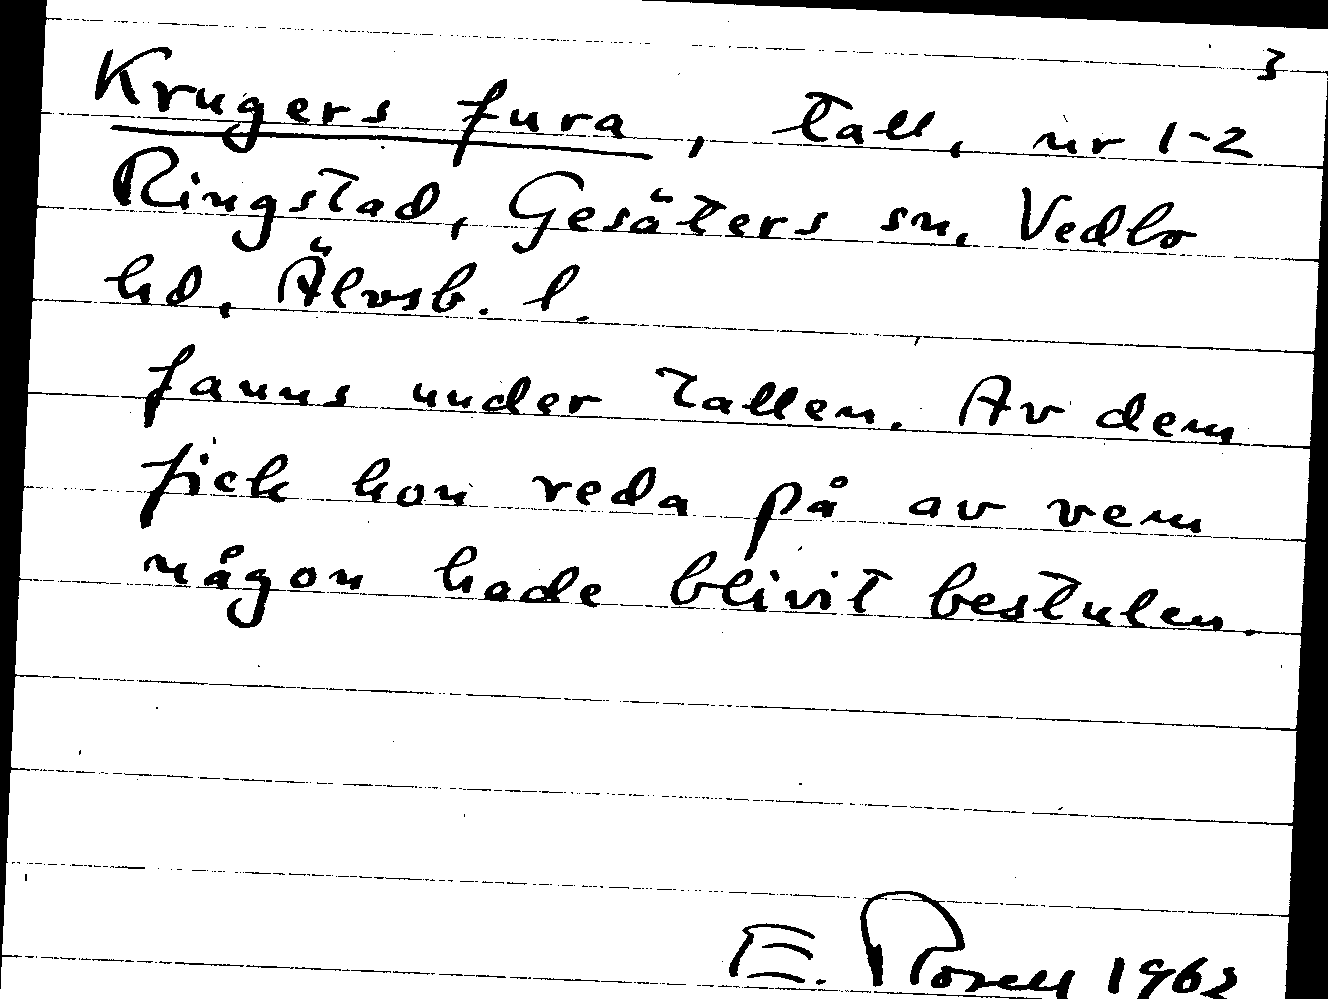 3
Krugers fura, tall, nr 1-2
Ringstad, Gesäters sn. Vedbo
hd, Älvsb. l.
fanns under tallen. Av dem
fick hon reda på av vem
någon hade blivit bestulen.
E. Rosell 1962